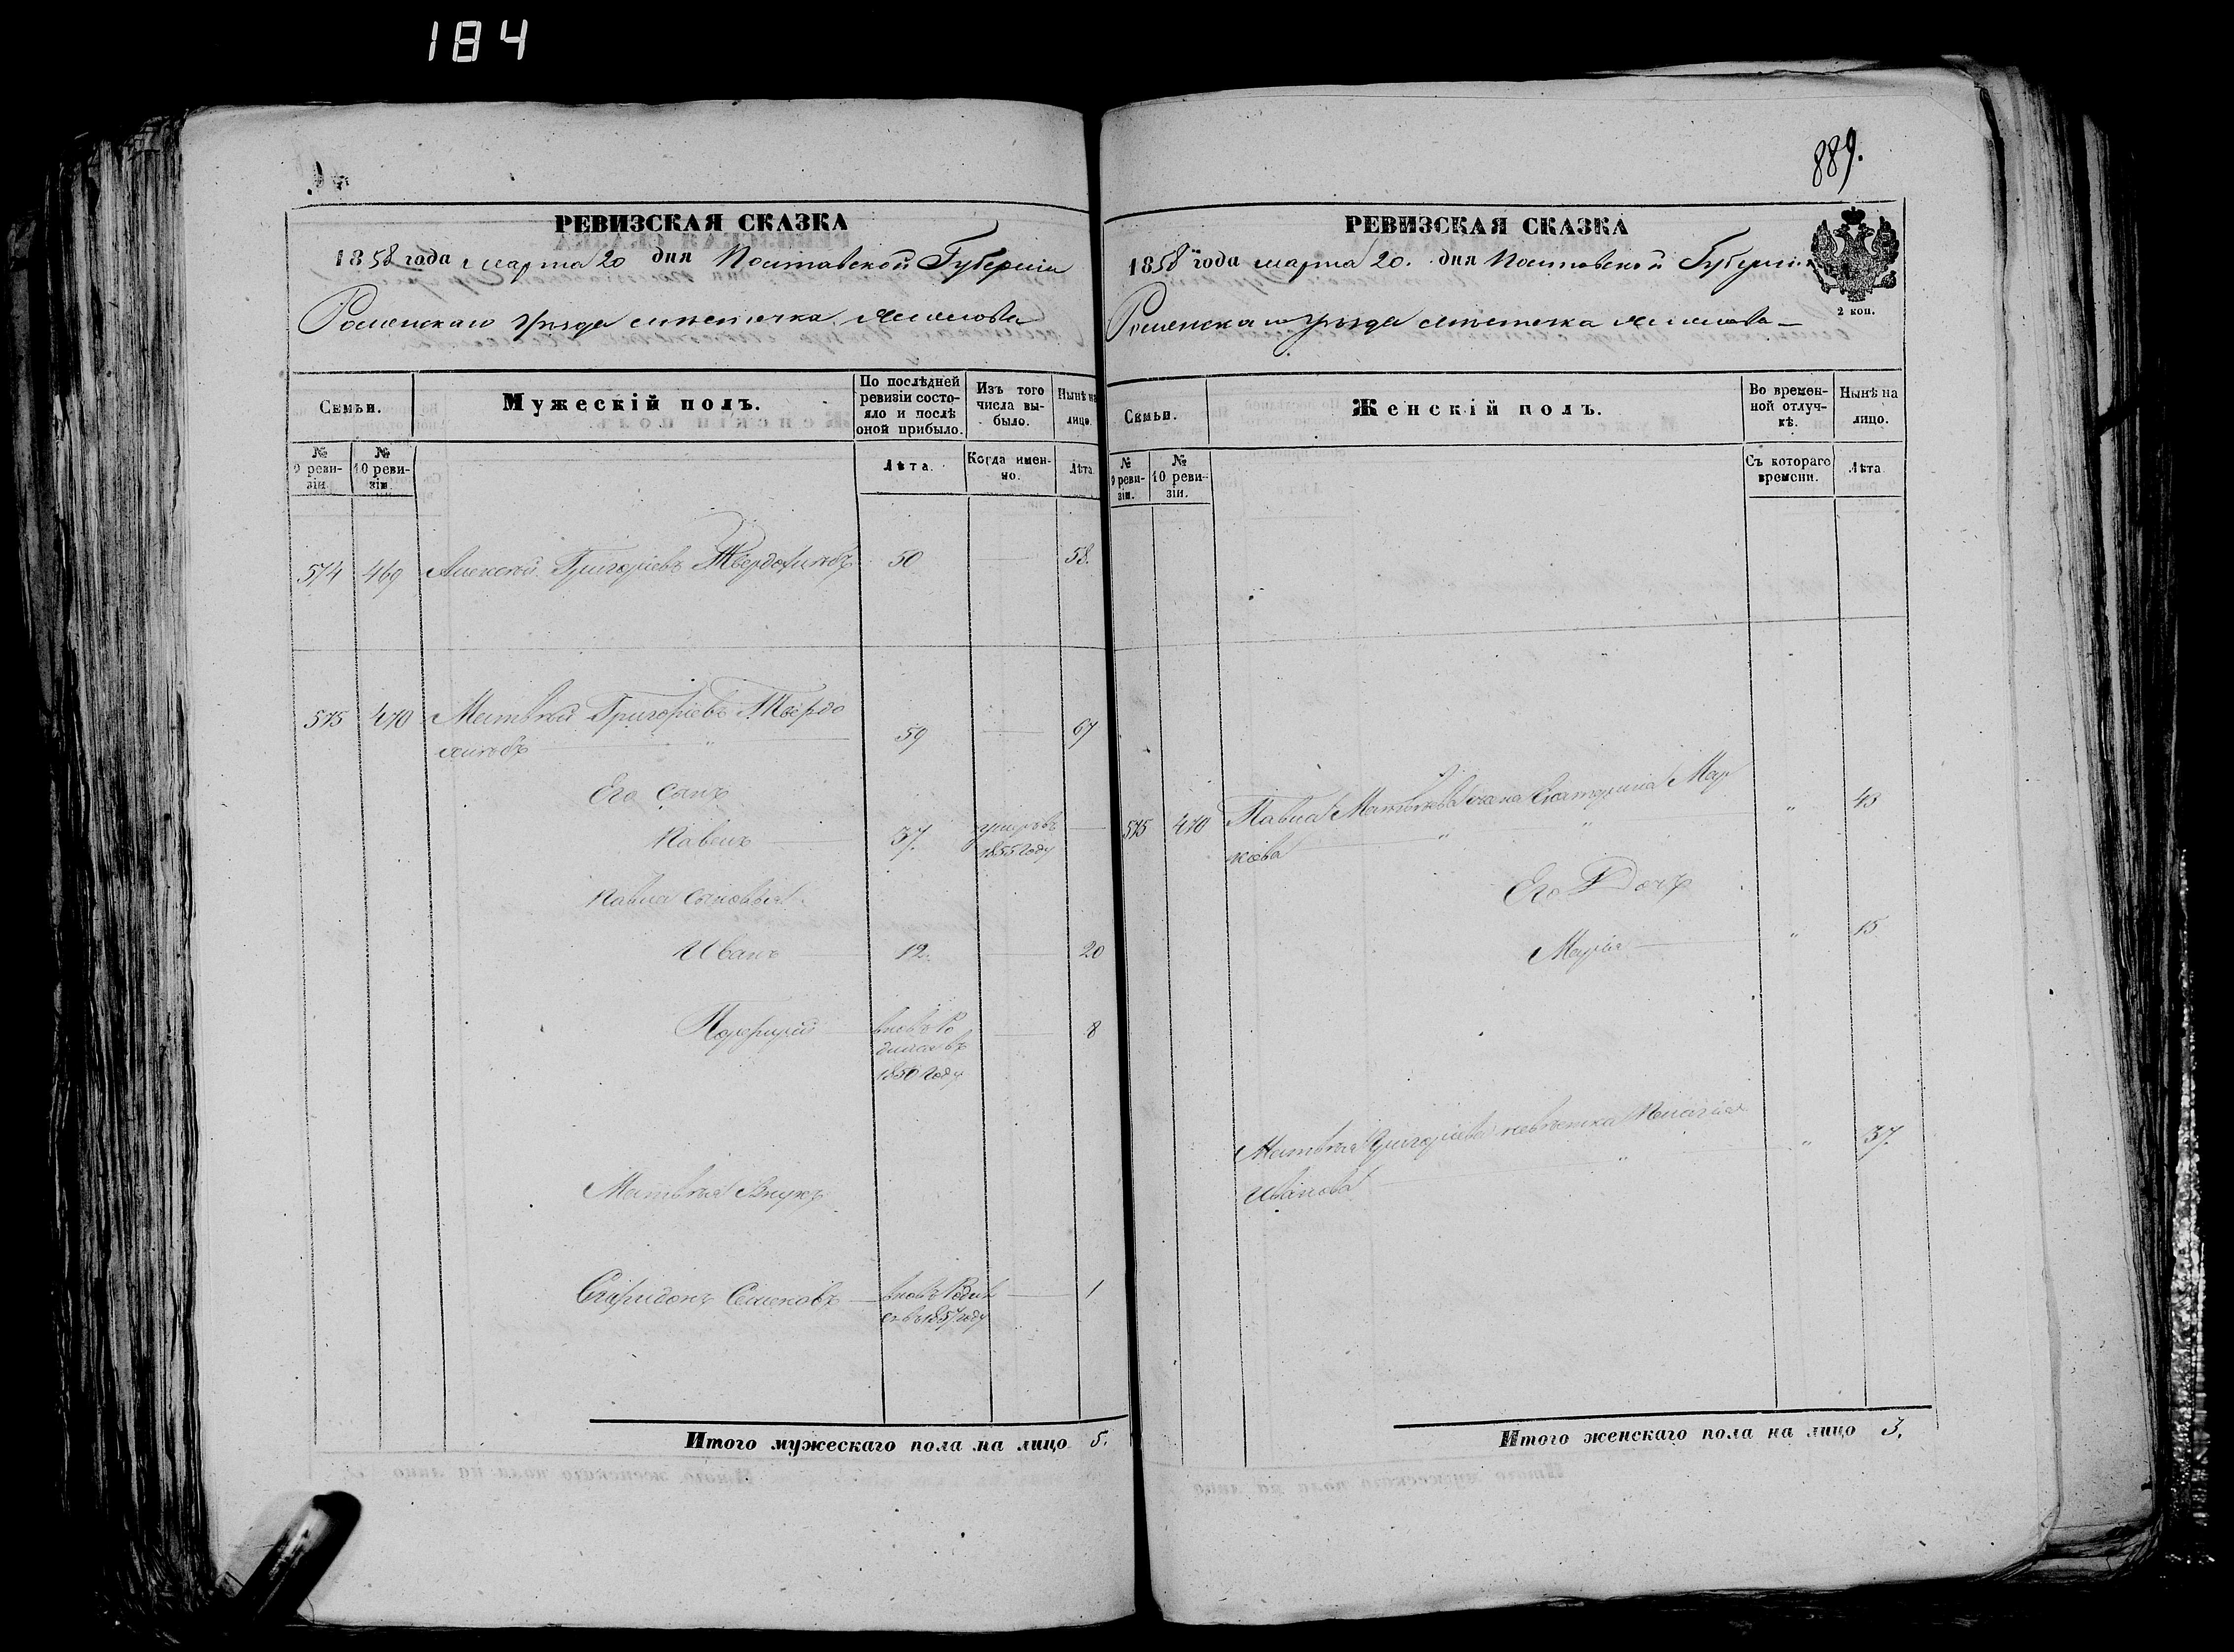 184
РЕВИЗСКАЯ СКАЗКА
1858 года марта 20 дня Полтавской Губерніи
Роменскаго Уѣзда мѣстечка
Семьи.
Мужескій полъ.
По послѣдней ревизіи состояло и послѣ оной прибыло.
Изъ того числа выбыло.
Нынѣ на лицо.
№ 9 ревизіи.
№ 10 ревизіи.
Лѣта.
Когда именно.
Лѣта.
574 469 Алексѣй Григоріевъ 50 58.
575 470 Матвѣй Григоріевъ Твердо 59 67
Его Сынъ
Павелъ 37. умеръ въ 1855 году
Павла Сыновья
Иванъ 12. 20
Порфирій вновь Родился въ 1850 году 8
Матвѣя Внукъ
Спиридонъ Семеновъ вновь Родился въ 1857 году 1
Итого мужескаго пола на лицо 5.
889.
РЕВИЗСКАЯ СКАЗКА
1858 года марта 20. дня Полтавской Губерніи
2 коп.
Роменскаго Уѣзда мѣстечка
Семьи.
Женскій полъ.
Во временной отлучкѣ.
Нынѣ на лицо.
№ 9 ревизіи.
№ 10 ревизіи.
Съ котораго времени.
Лѣта.
575 470 Павла Матвѣева жена Екатерина Мар " 43
кова
Его Дочь
Марія " 15
Матвѣя Григоріева невѣстка Пелагія " 37.
Иванова
Итого женскаго пола на лицо 3.